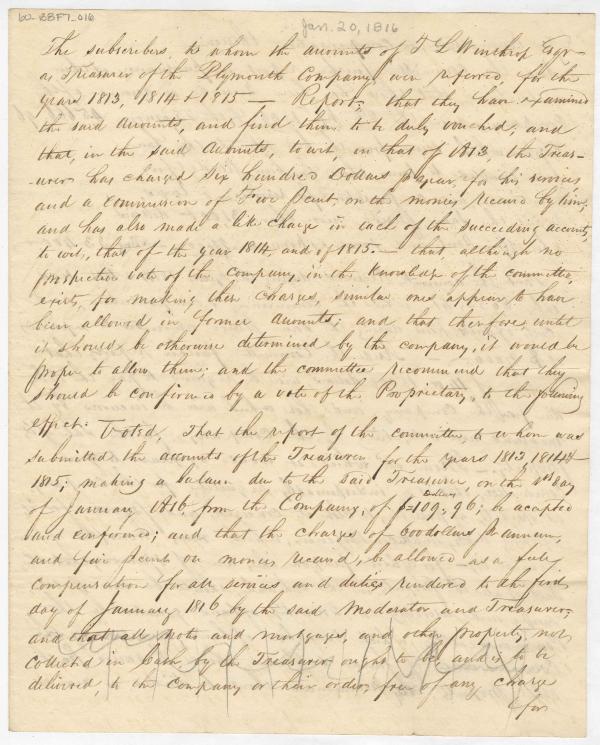 60-BBF7_016
Jan. 20, 1816
The subscribers, to whom the accounts of T L Winthrop Esqr
as Treasurer of the Plymouth Company were referred, for the
years 1813, 1814 & 1815 — Report; that they have examined
the said accounts, and find them to be duly vouched; and
that, in the said Accounts, to wit, in that of 1813, the Treas-
-urer has charged Six hundred Dollars pr year, for his services
and a commission of Five pCent, on the monies received by him;
and has also made a like charge in each of the succeeding accounts,
to wit, that of the year 1814, and of 1815. — that, although no
prospective vote of the Company, in the Knowledge of the committee,
exists, for making these charges, similar ones appear to have
been allowed in former accounts; and that therefore, until
it should be otherwise determined by the company, it would be
proper to allow them; and the committee recommend that they
should be confirmed by a vote of the Proprietary, to the following
effect: Voted, That the report of the committee, to whom was
submitted the accounts of the Treasurer for the years 1813, 1814 &
1815; making a balance due to the said Treasurer, on the day
of January 1816 from the Company, of 109.96; be accepted
Dollars
and confirmed; and that the charges of 600 dollars pr annum,
and five pCent on monies received, be allowed as a full
compensation for all services and duties rendered to the first
day of January 1816 by the said Moderator and Treasurer;
and that all notes and mortgages, and other property, not
collected in Cash by the Treasurer ought to be and is to be
delivered, to the company or their order, free of any charge
for